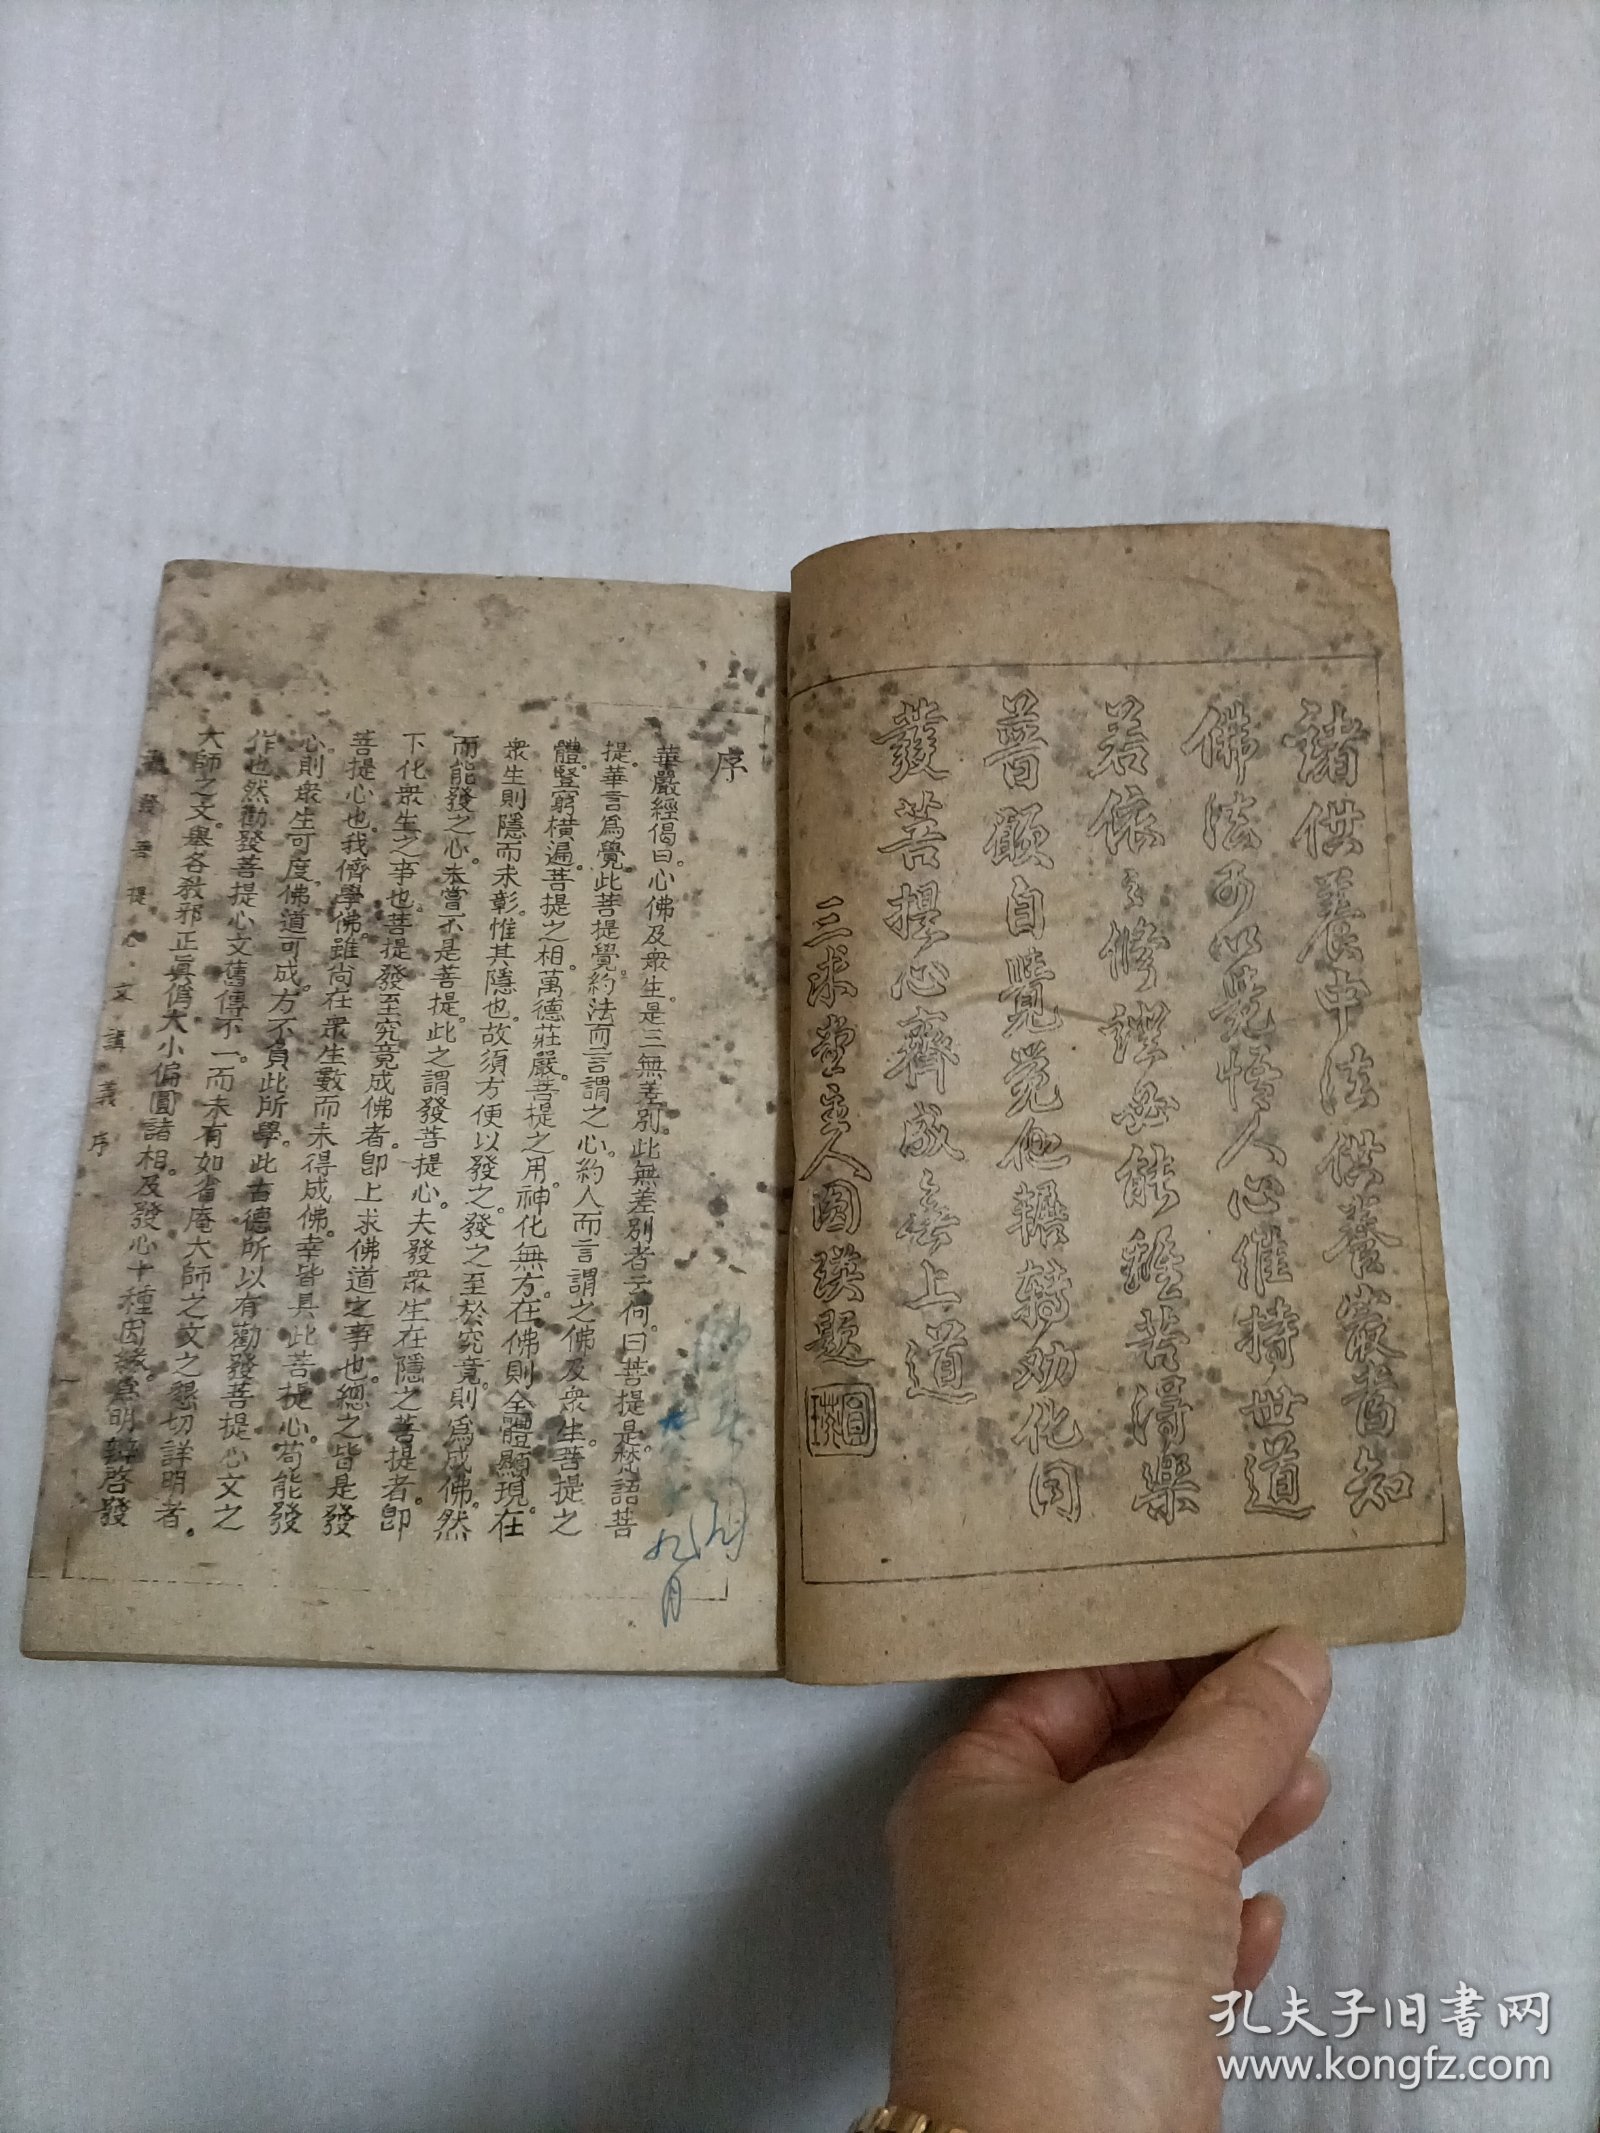 諸供養中法供養最者知
佛法可以覺悟人心維持世道
若依之修證必能離苦得樂
普願自覺覺他輾轉勸化同
發菩提心齊成無上道
三求堂主人圓瑛題
圓瑛
序
華嚴經偈曰。心佛及衆生。是三無差別。此無差別者云何。曰菩提是。梵語菩
提。華言爲覺。此菩提覺。約法而言謂之心。約人而言謂之佛及衆生。菩提之
體。豎窮橫遍。菩提之相。萬德莊嚴。菩提之用。神化無方。在佛則全體顯現。在
衆生則隱而未彰。惟其隱也。故須方便以發之。發之至於究竟。則爲成佛。然
而能發之心。未嘗不是菩提。此之謂發菩提心。夫發衆生在隱之菩提者。即
下化衆生之事也。菩提發至究竟成佛者。即上求佛道之事也。總之皆是發
菩提心也。我儕學佛。雖尚在衆生數而未得成佛。幸皆具此菩提心。苟能發
心。則衆生可度。佛道可成。方不負此所學。此古德所以有勸發菩提心文之
作也。然勸發菩提心文舊傳不一。而未有如省庵大師之文之懇切詳明者。
大師之文。舉各教邪正眞僞大小偏圓諸相。及發心十種因緣。爲明辨啓發
發菩提心文講義序
九月
孔夫子旧書网
www.kongfz.com